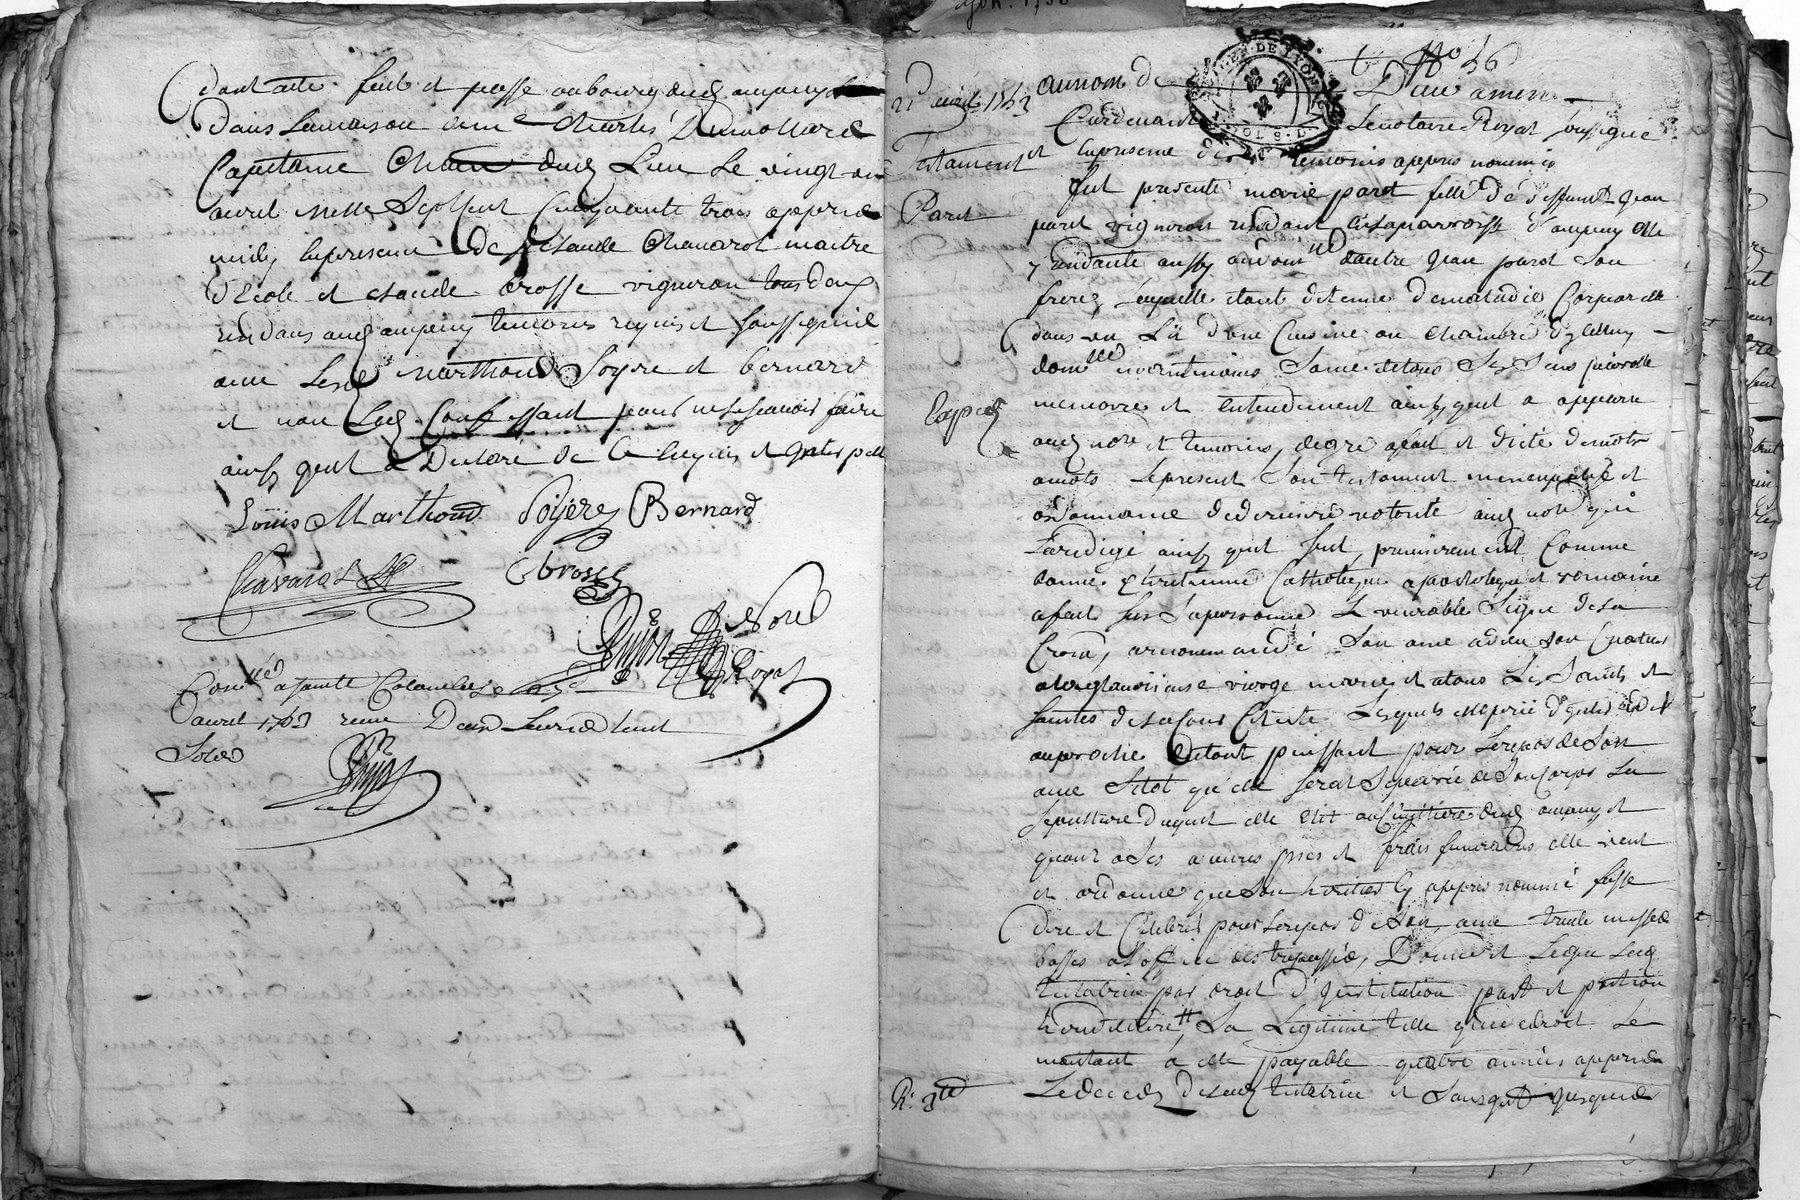 Dont acte fait et passé au bourg dud ampuy
Dans la maison de mr Charles Dumollard
Capitaine Chatn dud Lieu Le vingt un
avril Mille Sept Cent Cinquante trois apprès
midy En presence De Sr Claude Chavarot maitre
d'Ecole et Claude Brosse vigneron tous deux
residans aud ampuy temoins requis et soussignés
avec Lesd Marthoud Poyere et Bernard
et non Led Confessant pour ne sçavoir faire
ainsy quil a Declaré de Ce Enquis et Interpellé
Loüis Marthoud Poÿere Bernard
Chavarot
C brosse
Notre
Royal
Conllé a Sainte Colombe Le
avril 1753 reçu Douze sols
Sols
No 56
21 avril 1753
Testament
Paret
Exped
au nom de Dieu amen
Pardevant Le notaire Royal soussigné
et En presence des temoins apprès nommés
fut presente marie paret fille de deffunt Jean
paret vigneron residant En la parroisse d'ampuy Elle
y residante aussy au domlle dautre Jean paret Son
frere, Laquelle étant detenue de maladie Corporelle
dans un Lit d'une Cuisine ou Chambre dyceluy
domlle neantmoins Saine de tous Ses Sens parolle
memoire et Entendement ainsy quil a apparu
aud notre et temoins, de gré a fait et dicté de mots
a mots Le present Son testament nuncupatif et
ordonnance de derniere volonté aud notre qui
La redigé ainsy quil Suit, premierement Comme
bonne Chretienne Catholique apostolique et romaine
a fait sur Sa personne Le venerable Signe de la
Croix, a recommandé Son ame a dieu Son Createur
a la glorieuse vierge marie et a tous Les Saints et
Saintes de sa Cour Celeste Lesquels
pour Le repos de Son
ame Sitot qu'elle Serat Separée de Son Corps La
Sepulture duquel elle Elit au Cimitiere dud ampuy et
quant a Ses œuvres pies et frais funeraires elle veut
et ordonne que Son heritier Cy apprès nommé fasse
dire et Celebrer pour Le repos de Son ame trente messes
basses a L'office des trepassés, Donne et Legue Lad
testatrice par droit D'Institution part et portion
hereditaire, La Legitime telle que de droit Le
montant a elle payable quatre années apprès
Le deced de Lad testatrice et